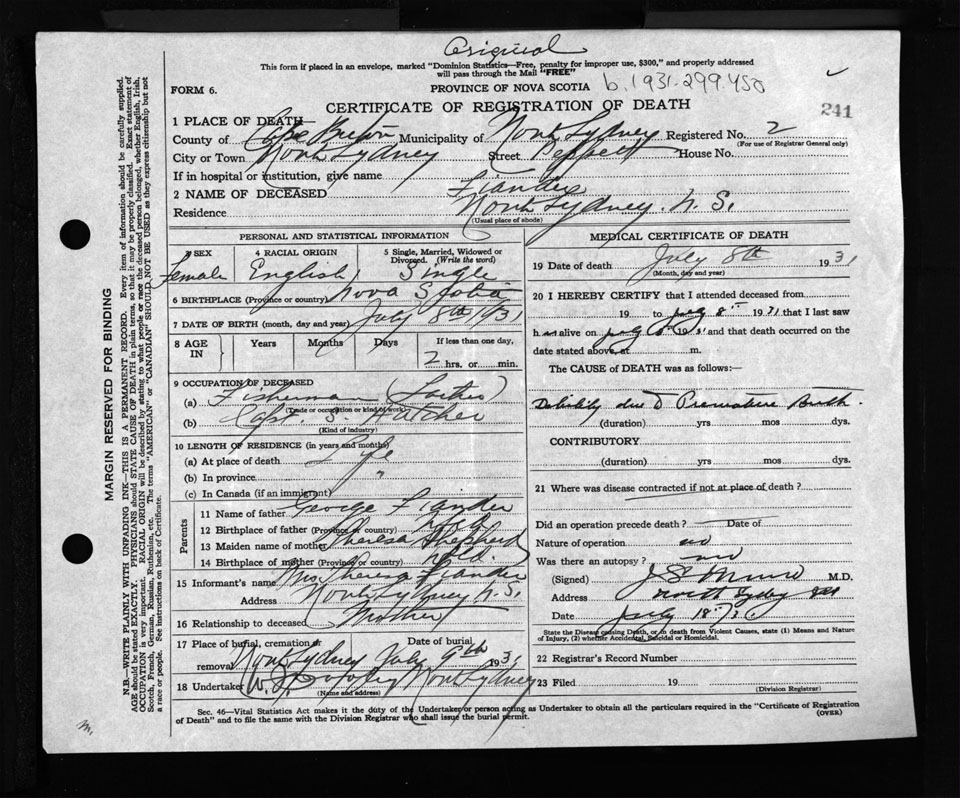 Original
This form if placed in an envelope, marked "Dominion Statistics—Free, penalty for improper use, $300," and properly addressed
will pass through the Mail "FREE"
FORM 6.
PROVINCE OF NOVA SCOTIA b.1931-299.450
CERTIFICATE OF REGISTRATION OF DEATH
241
1 PLACE OF DEATH—
County of Cape Breton Municipality of North Sydney Registered No. 2
(For use of Registrar General only)
City or Town North Sydney Street House No.
If in hospital or institution, give name
2 NAME OF DECEASED Fiander
Residence North Sydney. N. S.
(Usual place of abode)
PERSONAL AND STATISTICAL INFORMATION
3 SEX 4 RACIAL ORIGIN 5 Single, Married, Widowed or
Divorced. (Write the word)
Female English Single
6 BIRTHPLACE (Province or country) Nova Scotia
7 DATE OF BIRTH (month, day and year) July 8th 1931
8 AGE IN Years Months Days If less than one day,
2 hrs. or min.
9 OCCUPATION OF DECEASED
(a) Fisherman (Father)
(Trade or occupation or kind of work)
(b) Capt. S. Hatcher
(Kind of industry)
10 LENGTH OF RESIDENCE (in years and months)
(a) At place of death Life
(b) In province "
(c) In Canada (if an immigrant)
Parents
11 Name of father George Fiander
12 Birthplace of father (Province or country) Nfld
13 Maiden name of mother Theresa Shepherd
14 Birthplace of mother (Province or country) Nfld.
15 Informant's name Mrs. Theresa Fiander
Address North Sydney N.S.
16 Relationship to deceased Mother
17 Place of burial, cremation or Date of burial
removal North Sydney July 9th 1931
18 Undertaker North Sydney
(Name and address)
MEDICAL CERTIFICATE OF DEATH
19 Date of death July 8th 1931
(Month, day and year)
20 I HEREBY CERTIFY that I attended deceased from
19 to July 8th 1931 that I last saw
h alive on July 8 1931 and that death occurred on
date stated above, at m.
The CAUSE of DEATH was as follows:—
Debility due to Premature Birth.
(duration) yrs mos dys.
CONTRIBUTORY
(duration) yrs mos dys.
21 Where was disease contracted if not at place of death?
Did an operation precede death? Date of
Nature of operation no
Was there an autopsy? no
(Signed) M.D.
Address North Sydney
Date July 18
State the Disease causing Death, or in death from Violent Causes, state (1) Means and Nature
of Injury, (2) whether Accidental, Suicidal or Homicidal.
22 Registrar's Record Number
23 Filed 19
(Division Registrar)
Sec. 46—Vital Statistics Act makes it the duty of the Undertaker or person acting as Undertaker to obtain all the particulars required in the "Certificate of Registration
of Death" and to file the same with the Division Registrar who shall issue the burial permit.
(OVER)
MARGIN RESERVED FOR BINDING
N.B.—WRITE PLAINLY WITH UNFADING INK—THIS IS A PERMANENT RECORD. Every item of information should be carefully supplied.
AGE should be stated EXACTLY. PHYSICIANS should STATE CAUSE OF DEATH in plain terms, so that it may be properly classified. Exact statement of
OCCUPATION is very important. RACIAL ORIGIN will be described by stating to what people or race the deceased person belonged, whether English, Irish,
Scotch, French, German, Russian, Ruthenian, etc. The terms "AMERICAN" or "CANADIAN" SHOULD NOT BE USED as they express citizenship but not
a race or people. See instructions on back of Certificate.